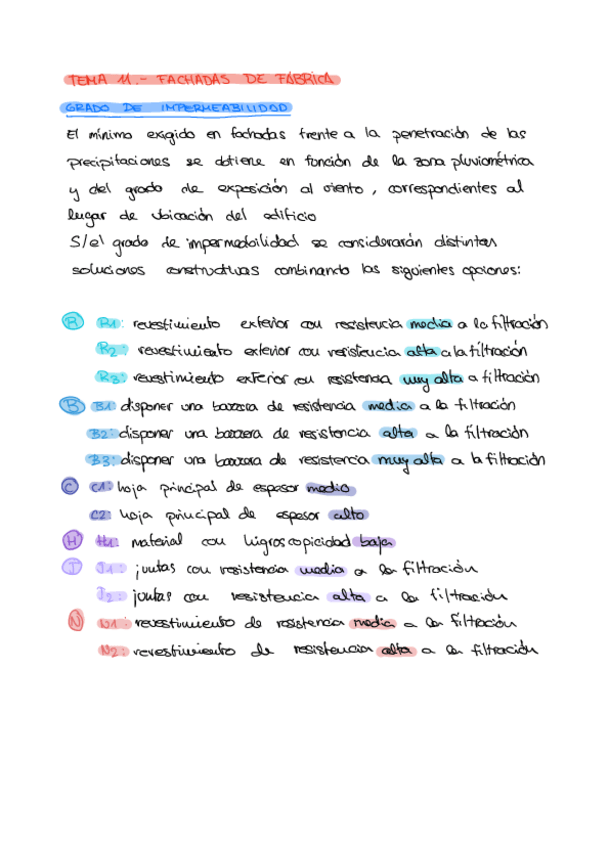 TEMA 11.- FACHADAS DE FÁBRICA
GRADO DE IMPERMEABILIDAD
El mínimo exigido en fachadas frente a la penetración de las
precipitaciones se obtiene en función de la zona pluviométrica
y del grado de exposición al viento, correspondientes al
lugar de ubicación del edificio
S/el grado de impermeabilidad se considerarán distintas
soluciones constructivas combinando las siguientes opciones:
R R1: revestimiento exterior con resistencia media a la filtración
R2: revestimiento exterior con resistencia alta a la filtración
R3: revestimiento exterior con resistencia muy alta a filtración
B B1: disponer una barrera de resistencia media a la filtración
B2: disponer una barrera de resistencia alta a la filtración
B3: disponer una barrera de resistencia muy alta a la filtración
C C1: hoja principal de espesor medio
C2: hoja principal de espesor alto
H H1: material con higroscopicidad baja
J J1: juntas con resistencia media a la filtración
J2: juntas con resistencia alta a la filtración
N N1: revestimiento de resistencia media a la filtración
N2: revestimiento de resistencia alta a la filtración